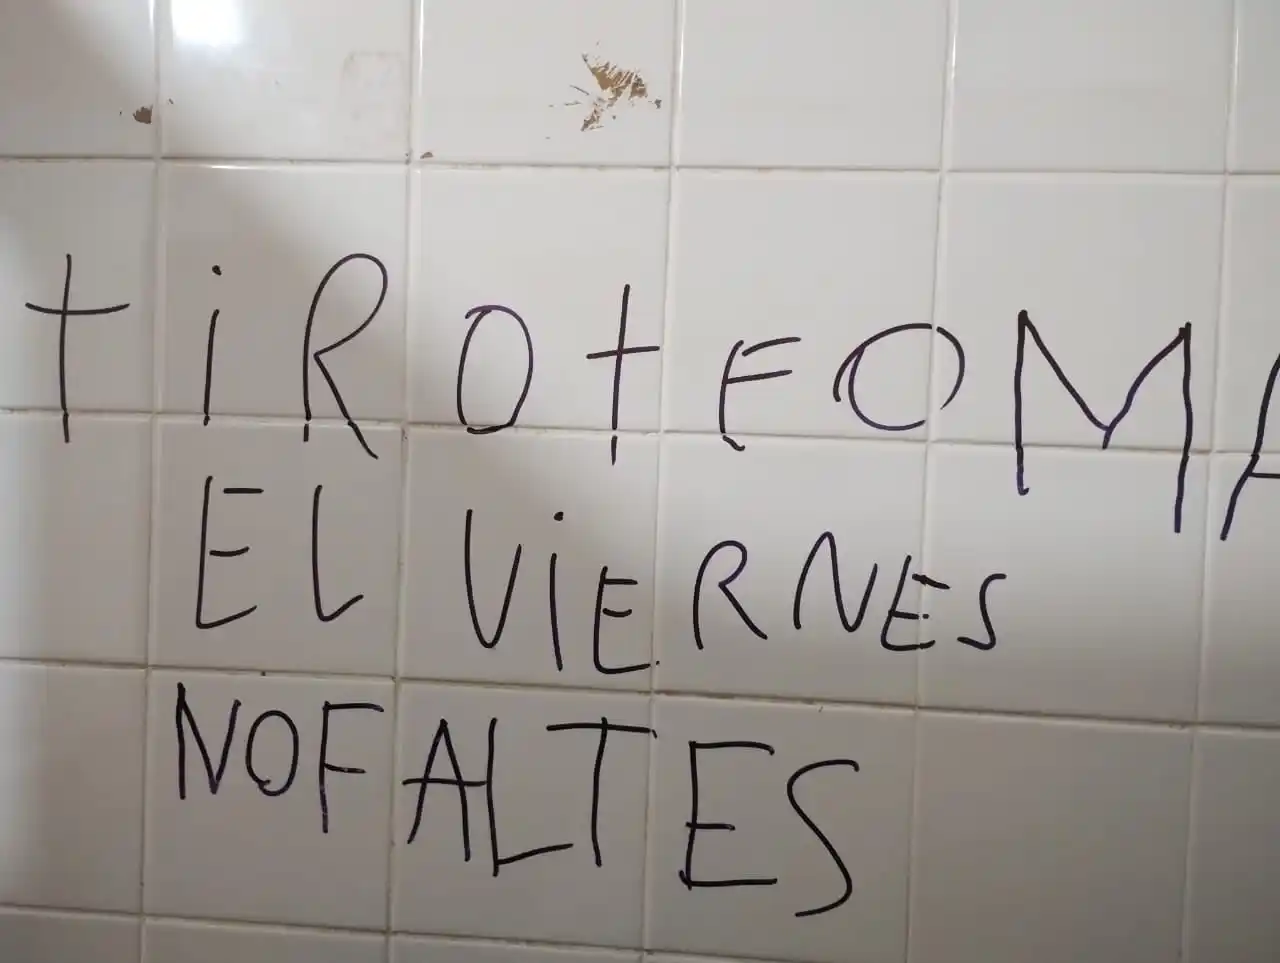 TiROtEOMA
EL ViERNES
NOFALTES